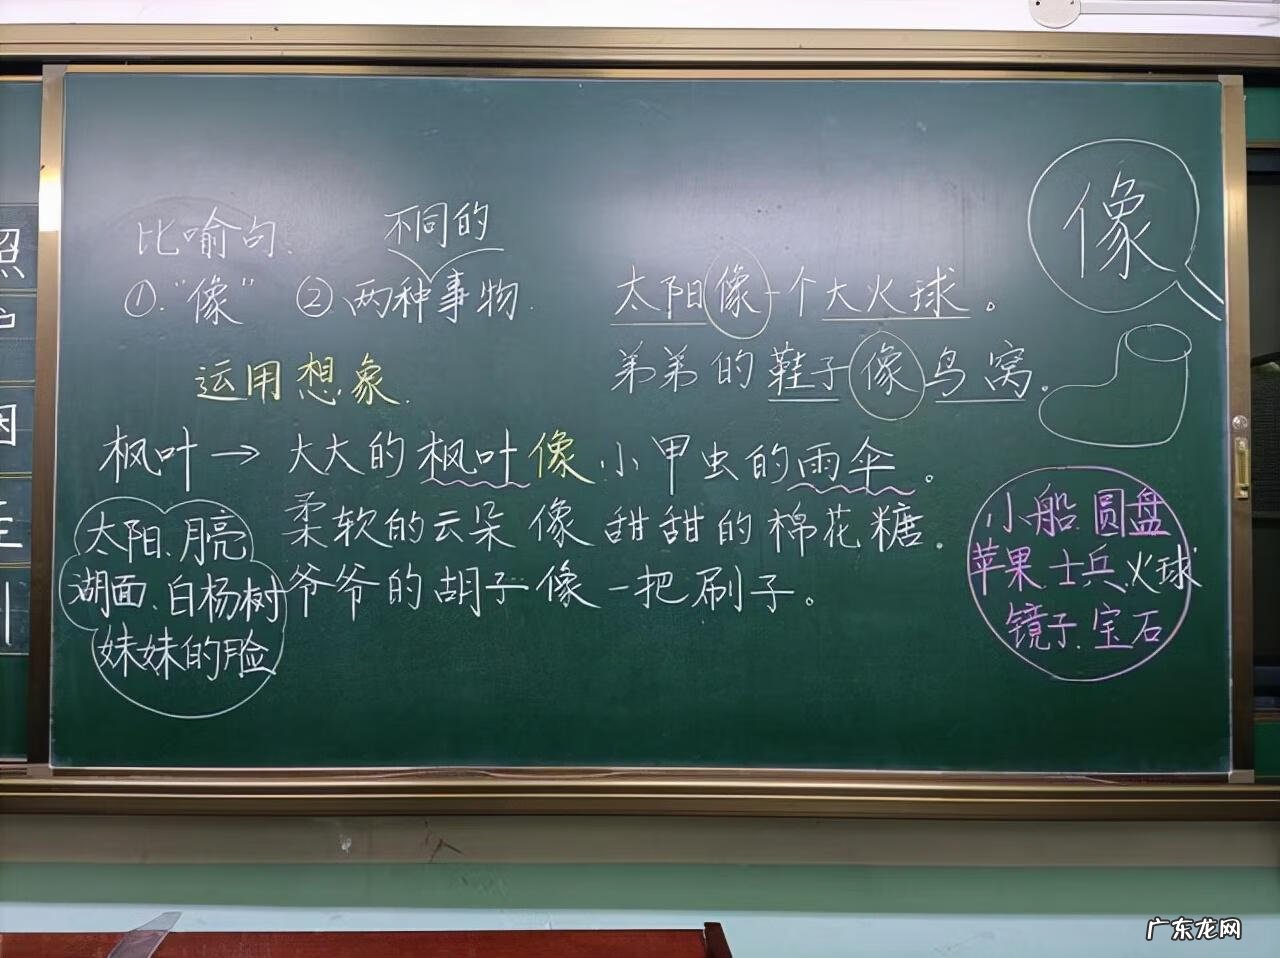 比喻句.
不同的
①."像" ②两种事物.
运用想象.
太阳像一个大火球。
弟弟的鞋子像鸟窝。
像
枫叶→大大的枫叶像小甲虫的雨伞。
柔软的云朵像甜甜的棉花糖.
爷爷的胡子像一把刷子。
太阳、月亮
湖面、白杨树
妹妹的脸
小船.圆盘
苹果.士兵.火球
镜子.宝石
照
广东龙网